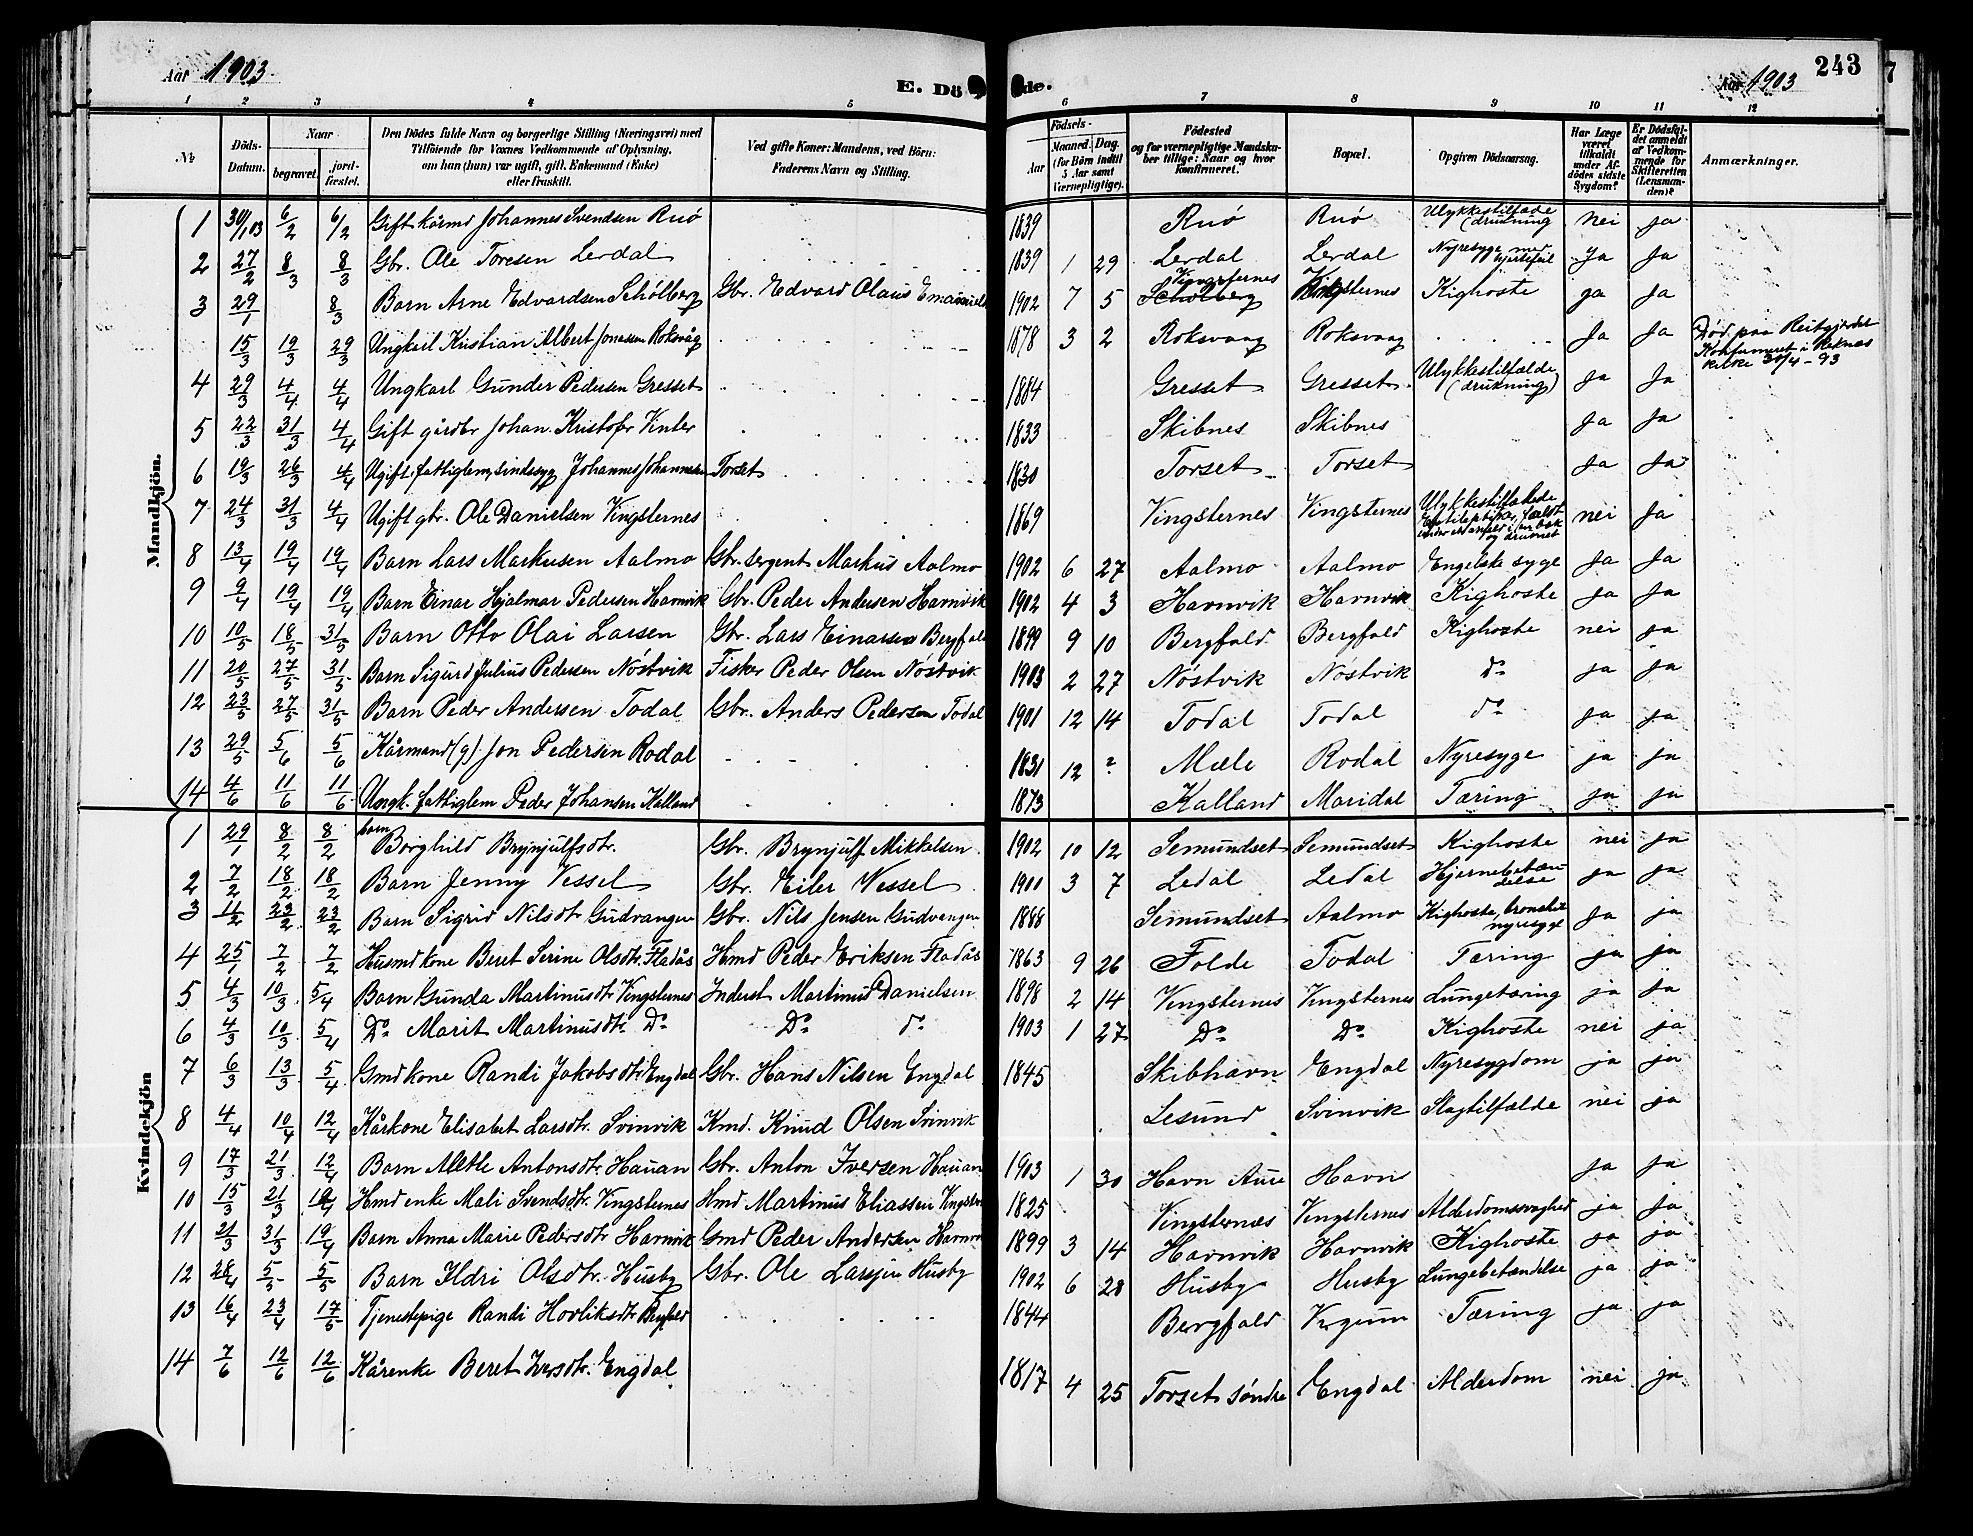 Aar 1903.
E. Dö de.
Aar 1903
243
1 2 3 4 5 6 7 8 9 10 11 12
№
Döds-Datum.
Naar
begravet.
jord-fæstet.
Den Dödes fulde Navn og borgerlige Stilling (Næringsvei) med
Tilföiende for Voxnes Vedkommende af Oplysning,
om han (hun) var ugift, gift, Enkemand (Enke)
eller fraskilt.
Ved gifte Koner: Mandens, ved Börn:
Faderens Navn og Stilling.
Födsels-
Aar
Maaned. Dag.
(for Börn indtil
5 Aar samt
Værnepligtige).
Födested
og for værnepligtige Mandska-
ber tillige: Naar og hvor
konfirmeret.
Bopæl.
Opgiven Dödsaarsag.
Har Læge
været
tilkaldt
under Af-
dödes sidste
Sygdom?
Er Dödsfal-
det anmeldt
af Vedkom-
mende for
Skifteretten
(Lensman-
den)?
Anmærkninger.
Mandkjön.
1 30/1 03 6/2 6/2 Gift kårmd Johannes Svendsen Ruø 1839 Ruø Ruø Ulykkestilfælde (drukning) nei ja
2 27/2 8/3 8/3 Gbr. Ole Toresen Lerdal 1839 1 29 Lerdal Lerdal Nyresyge med hjertefeil Ja Ja
3 29/1 8/3 Barn Arne Edvardsen Schölberg Gbr. Edvard Olaus Emanuels 1902 7 5 Vingsternes Schölberg Vingsternes Kighoste ja Ja
15/3 19/3 29/3 Ungkarl Kristian Albert Jonassen Roksvåg 1878 3 2 Roksvaag Roksvaag Ja Ja Död paa Reitgjerdet Konfirmeret i Reknæs kirke 30/4-93
4 29/3 4/4 4/4 Ungkarl Gunder Pedersen Gresset 1884 Gresset Gresset Ulykkestilfælde (drukning) Ja Ja
5 22/3 31/3 4/4 Gift gårdbr Johan Kristofer Vinter 1833 Skibnes Skibnes Ja Ja
6 19/3 26/3 4/4 Ugift, fattiglem, sindssyg Johannes Johannesen Torset 1830 Torset Torset Ja Ja
7 24/3 31/3 4/4 Ugift gbr. Ole Danielsen Vingsternes 1869 Vingsternes Vingsternes Ulykkestilfælde og druknet nei Ja
8 13/4 19/4 19/4 Barn Lars Markusen Aalmo Gbr. sergent Markus Aalmo 1902 6 27 Aalmo Aalmo Engelske syge Ja Ja
9 9/4 19/4 19/4 Barn Einar Hjalmar Pedersen Havnvik Gbr. Peder Andersen Havnvik 1902 4 3 Havnvik Havnvik Kighoste Ja Ja
10 10/5 18/5 31/5 Barn Otto Olai Larsen Gbr. Lars Einarsen Bergfald 1899 9 10 Bergfald Bergfald Kighoste nei ja
11 20/5 27/5 31/5 Barn Sigurd Julius Pedersen Nöstvik Fisker Peder Olsen Nöstvik 1903 2 27 Nöstvik Nöstvik do ja ja
12 23/5 27/5 31/5 Barn Peder Andersen Todal Gbr. Anders Pedersen Todal 1901 12 14 Todal Todal do ja ja
13 29/5 5/6 5/6 Kårmand (g) Jon Pedersen Rodal 1831 12 ? Mæle Rodal Nyresyge ja ja
14 4/6 11/6 11/6 Ungk. fattiglem Peder Johansen Kalland 1873 Kalland Maridal Tæring ja ja
Kvindekjön
1 29/1 8/2 8/2 barn Borghild Brynjulfsdtr. Gbr. Brynjulf Mikkelsen 1902 10 12 Semundset Semundset Kighoste nei ja
2 7/2 18/2 18/2 Barn Jenny Vessel Gbr. Eiler Wessel 1900 3 7 Ledal Ledal Hjernebetændelse ja ja
3 11/2 23/2 23/2 Barn Sigrid Nilsdtr Gudvangen Gbr. Nils Jensen Gudvangen 1888 Semundset Aalmo Kighoste, bronchit nyresyge Ja ja
4 25/1 7/2 7/2 Husmdkone Beret Serine Olsdtr. Fladås Hmd Peder Eriksen Fladås 1863 9 26 Folde Todal Tæring ja ja
5 4/3 10/3 5/4 Barn Gunda Martinusdtr Vingsternes Inderst Martinus Danielsen 1898 2 14 Vingsternes Vingsternes Lungetæring ja ja
6 4/3 10/3 5/4 Do Marit Martinusdtr. Do Do do 1903 1 27 Do Do Kighoste nei ja
7 6/3 13/3 5/4 Gmdkone Randi Jakobsdtr Engdal Gbr. Hans Nilsen Engdal 1845 Skibhavn Engdal Nyresygdom ja ja
8 4/4 10/4 12/4 Kårkone Elisabet Larsdtr. Svinvik Kmd. Knud Olsen Svinvik Lesund Svinvik Slagtilfælde nei ja
9 17/3 21/3 12/4 Barn Alethe Antonsdtr. Hauan Gbr. Anton Iversen Hauan 1903 1 30 Havn Aure Havn ja ja
10 15/3 21/3 19/4 Hmd enke Mali Svendsdtr. Vingsternes Hmd Martinus Eliassen Vingstern 1825 Vingsternæs Vingsternes Alderdomssvaghed ja Ja
11 21/3 31/3 19/4 Barn Anna Marie Pedersdtr Havnvik Gmd Peder Andersen Havnvi 1899 3 14 Havnvik Havnvik Kighoste ja ja
12 28/4 5/5 5/5 Barn Ildri Olsdtr. Husby Gbr. Ole Larsen Husby 1902 6 28 Husby Husby Lungebetændelse ja ja
13 16/4 23/4 17/5 Tjenestepige Randi Hovliksdtr Bergfald 1844 Bergfald Tæring ja ja
14 7/6 12/6 12/6 Kårenke Beret Iversdtr. Engdal 1817 4 25 Torset söndre Engdal Alderdom nei ja